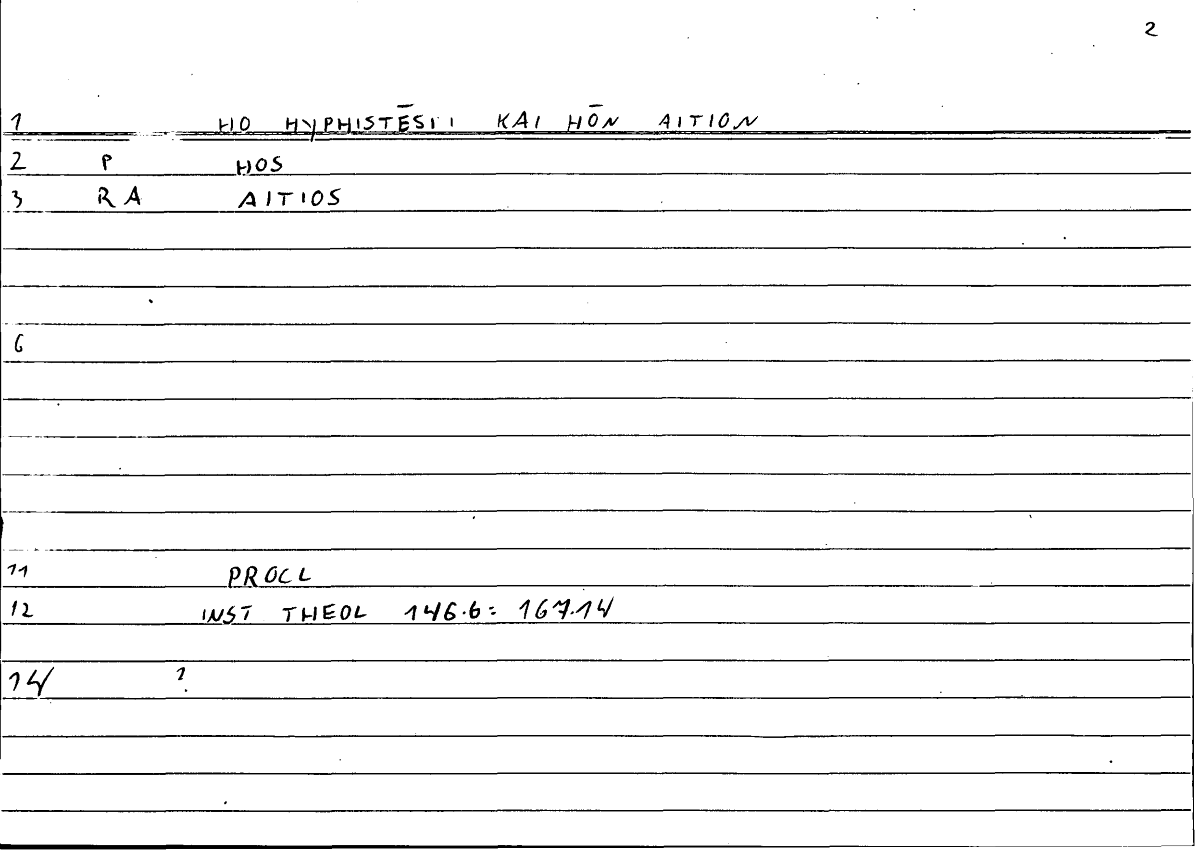 2
1 HO HYPHISTĒSI KAI HŌN AITION
2 P HOS
3 RA AITIOS
6
11 PROCL
12 INST THEOL 146.6: 167.14
14 ?